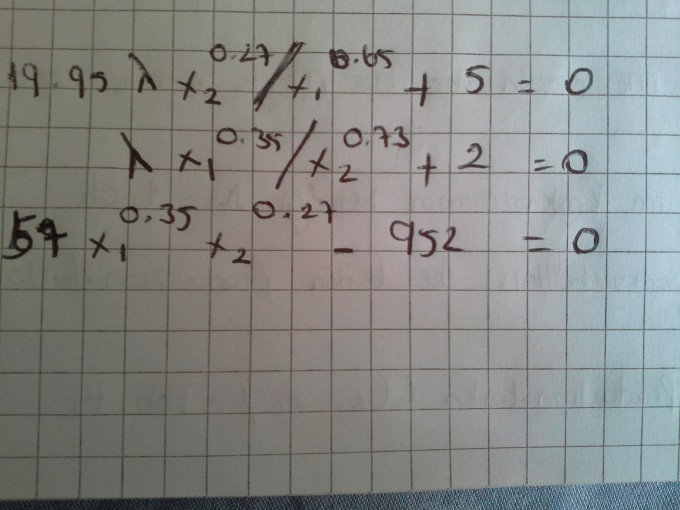 19.95 λ x₂^0.27 / x₁^0.65 + 5 = 0
λ x₁^0.35 / x₂^0.73 + 2 = 0
57 x₁^0.35 x₂^0.27 - 952 = 0